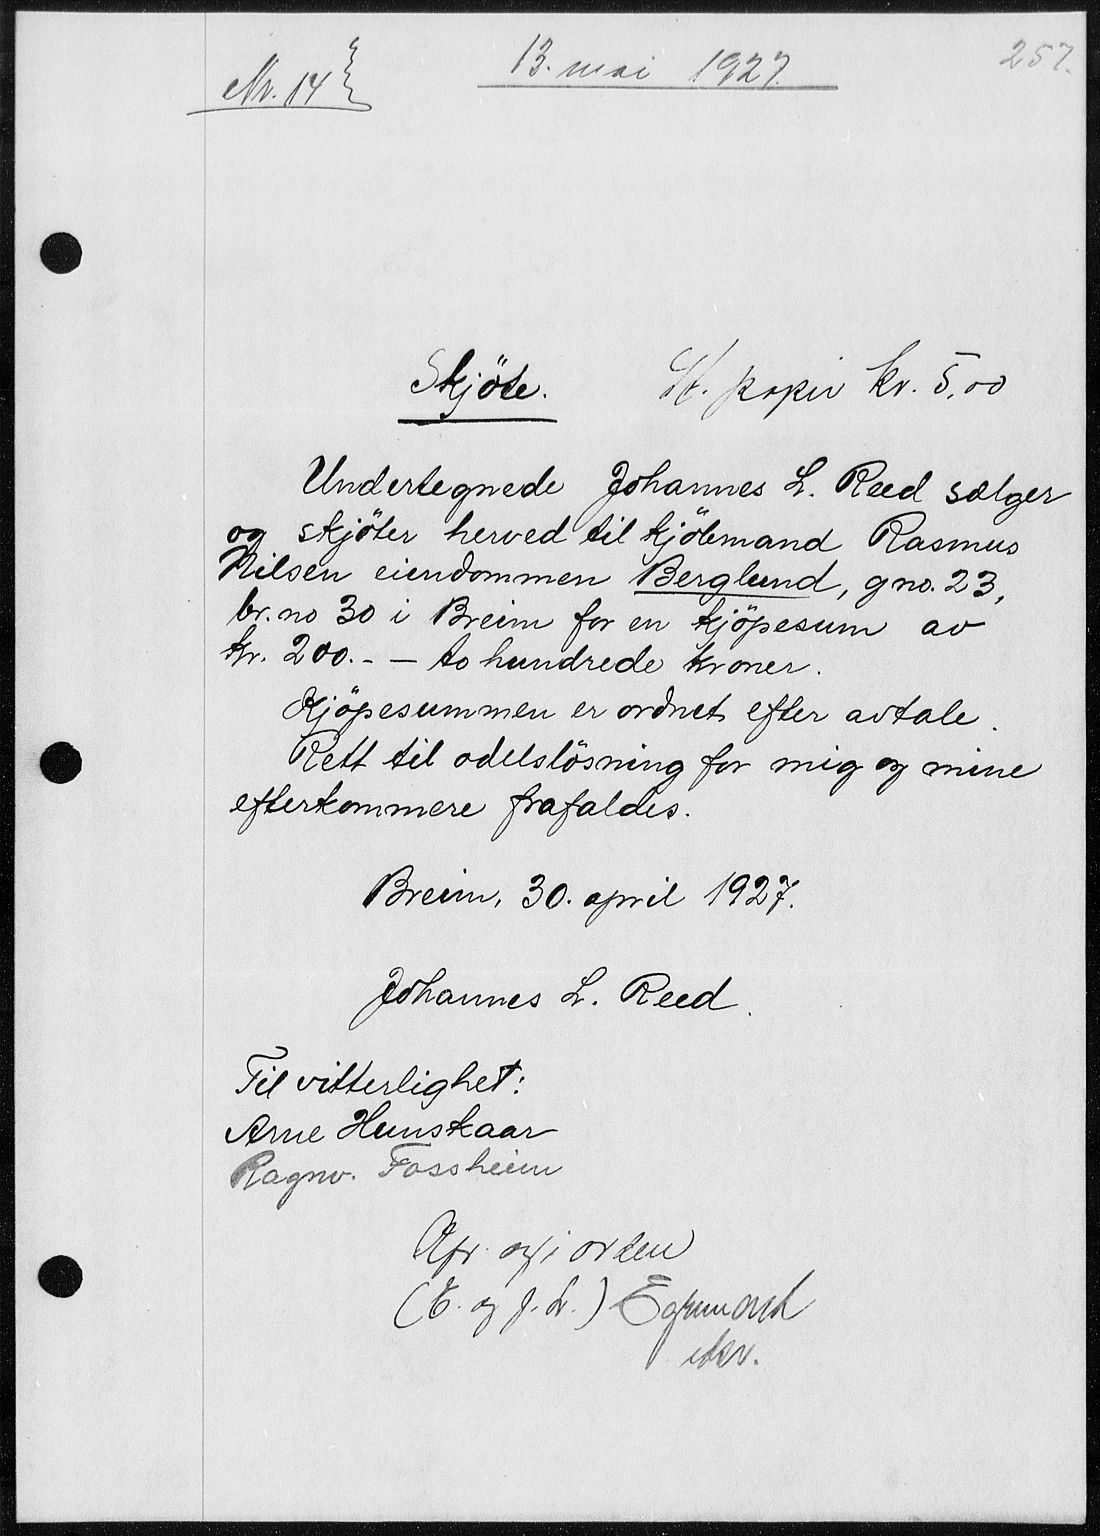 257.
13. mai 1927.
Nr. 14
Skjöte.
St. papir kr. 5,00
Undertegnede Johannes L. Reed sælger
og skjöter herved til kjöbmand Rasmus
Nilsen eiendommen Berglund, gno. 23,
br. no 30 i Breim for en kjöpesum av
kr. 200.- — to hundrede kroner.
Kjöpesummen er ordnet efter avtale.
Rett til odelslösning for mig og mine
efterkommere frafaldes.
Breim, 30. april 1927.
Johannes L. Reed.
Til vitterlighet:
Arne Hunskaar
Ragnv. Fossheim
Afr. og i orden
(E. og J. L.)